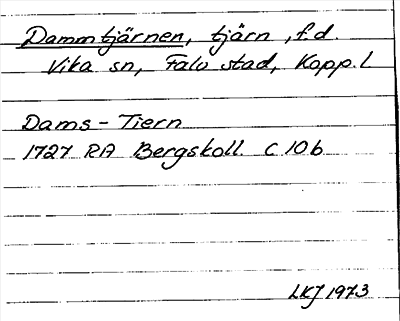 Dammtjärnen, tjärn, f.d.
Vika sn, Falu stad, Kopp. l.
Dams-Tiern
1727 RA Bergskoll. C 10 b
LKJ 1973